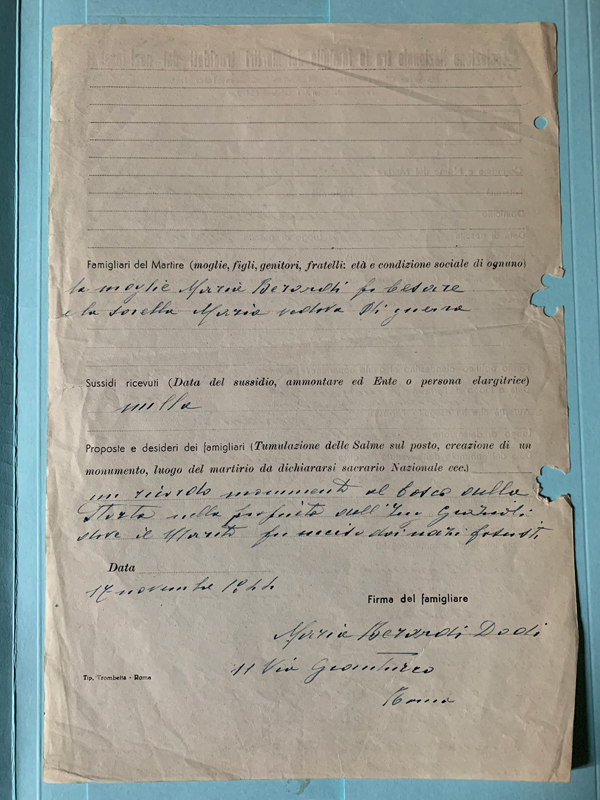 Famigliari del Martire (moglie, figli, genitori, fratelli: età e condizione sociale di ognuno)
la moglie Maria Berardi fu Cesare
e la sorella Maria vedova Di guerra
Sussidi ricevuti (Data del sussidio, ammontare ed Ente o persona elargitrice)
nulla
Proposte e desideri dei famigliari (Tumulazione delle Salme sul posto, creazione di un
monumento, luogo del martirio da dichiararsi sacrario Nazionale ecc.)
un ricordo monumento al bosco della
Storta nella proprietà dell'Ing
dove il Marito fu ucciso dai nazi fascisti
Data
17 novembre 1944
Firma del famigliare
Maria Berardi Dodi
11 Via Gianturco
Roma
Tip. Trombetta - Roma